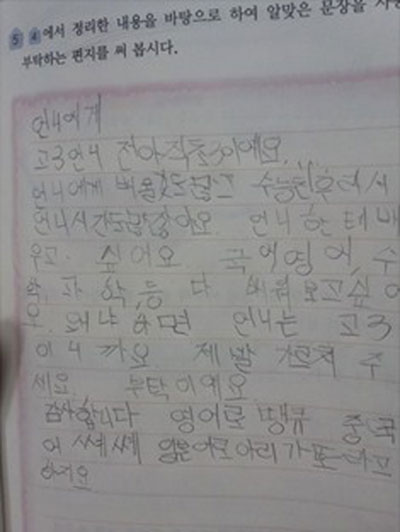 5 4 에서 정리한 내용을 바탕으로 하여 알맞은 문장을
부탁하는 편지를 써 봅시다.
언니에게
고3언니 전아직초3이에요.
언니에게 배울것도많고 수능친후라서
언니시간도많잖아요 언니한테배
우고 싶어요 국어영어,수
학,과학,등 다 배워보고싶어
요 왜냐하면 언니는 고3
이니까요 제발 가르쳐 주
세요 부탁이예요
감사합니다 영어로땡큐 중국
어 쎄쎄 일본어로아리가또라고
하지요